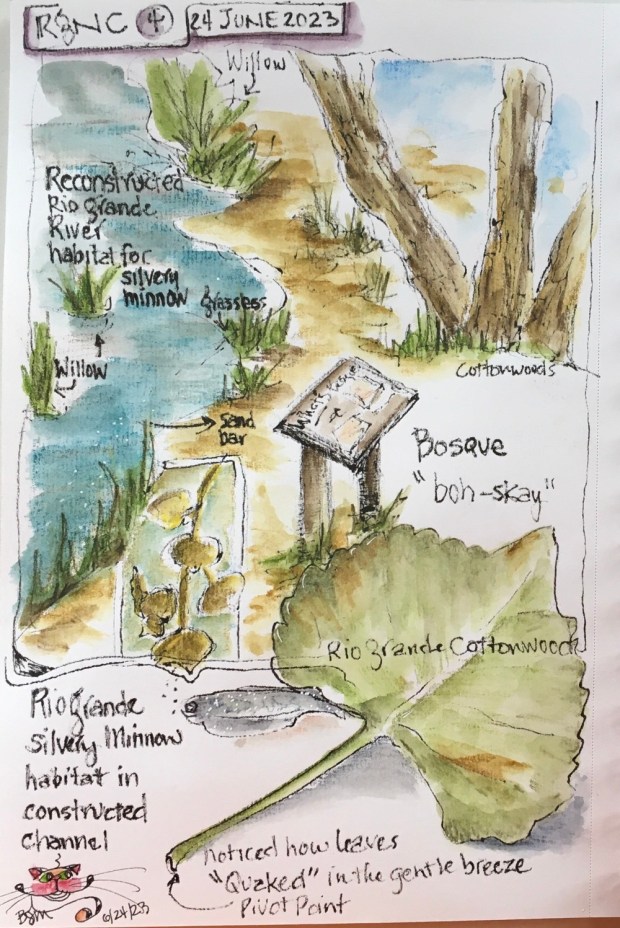 RGNC 4
24 JUNE 2023
Willow
Reconstructed
Rio Grande
River
habitat for
silvery
minnow
grasses
Willow
Sand
bar
Cottonwoods
Bosque
"boh-skay"
Rio Grande Cottonwood
Rio Grande
Silvery Minnow
habitat in
constructed
Channel
noticed how leaves
"Quaked" in the gentle breeze
Pivot Point
6/24/23